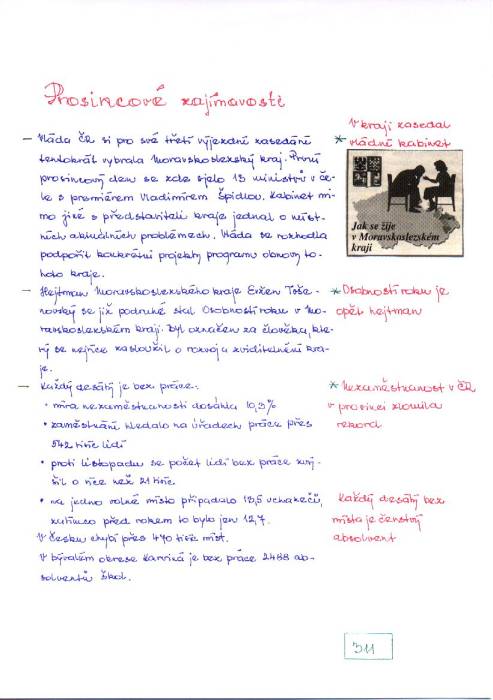 Prosincové zajímavosti
V kraji zasedal
vládní kabinet
– Vláda ČR si pro své třetí výjezdní zasedání
tentokrát vybrala Moravskoslezský kraj. První
prosincový den se zde sjelo 13 ministrů v če-
le s premiérem Vladimírem Špidlou. Kabinet mi-
mo jiné s představiteli kraje jednal o míst-
ních aktuálních problémech. Vláda se rozhodla
podpořit konkrétní projekty programu obnovy to-
hoto kraje.
Jak se žije
v Moravskoslezském
kraji
– Hejtman Moravskoslezského kraje Evžen Toše-
novský se již podruhé stal Osobností roku v Mo-
ravskoslezském kraji. Byl označen za člověka, kte-
rý se nejvíce zasloužil o rozvoj a zviditelnění kra-
je.
* Osobností roku je
opět hejtman
– Každý desátý je bez práce:
• míra nezaměstnanosti dosáhla 10,3%
• zaměstnání hledalo na úřadech práce přes
542 tisíc lidí
• proti listopadu se počet lidí bez práce zvý-
šil o více než 21 tisíc
• na jedno volné místo připadalo 13,5 uchazečů,
zatímco před rokem to bylo jen 12,7.
V Česku chybí přes 470 tisíc míst.
V bývalém okrese Karviná je bez práce 2488 ab-
solventů škol.
* Nezaměstnanost v ČR
v prosinci zlomila
rekord
Každý desátý bez
místa je čerstvý
absolvent
311